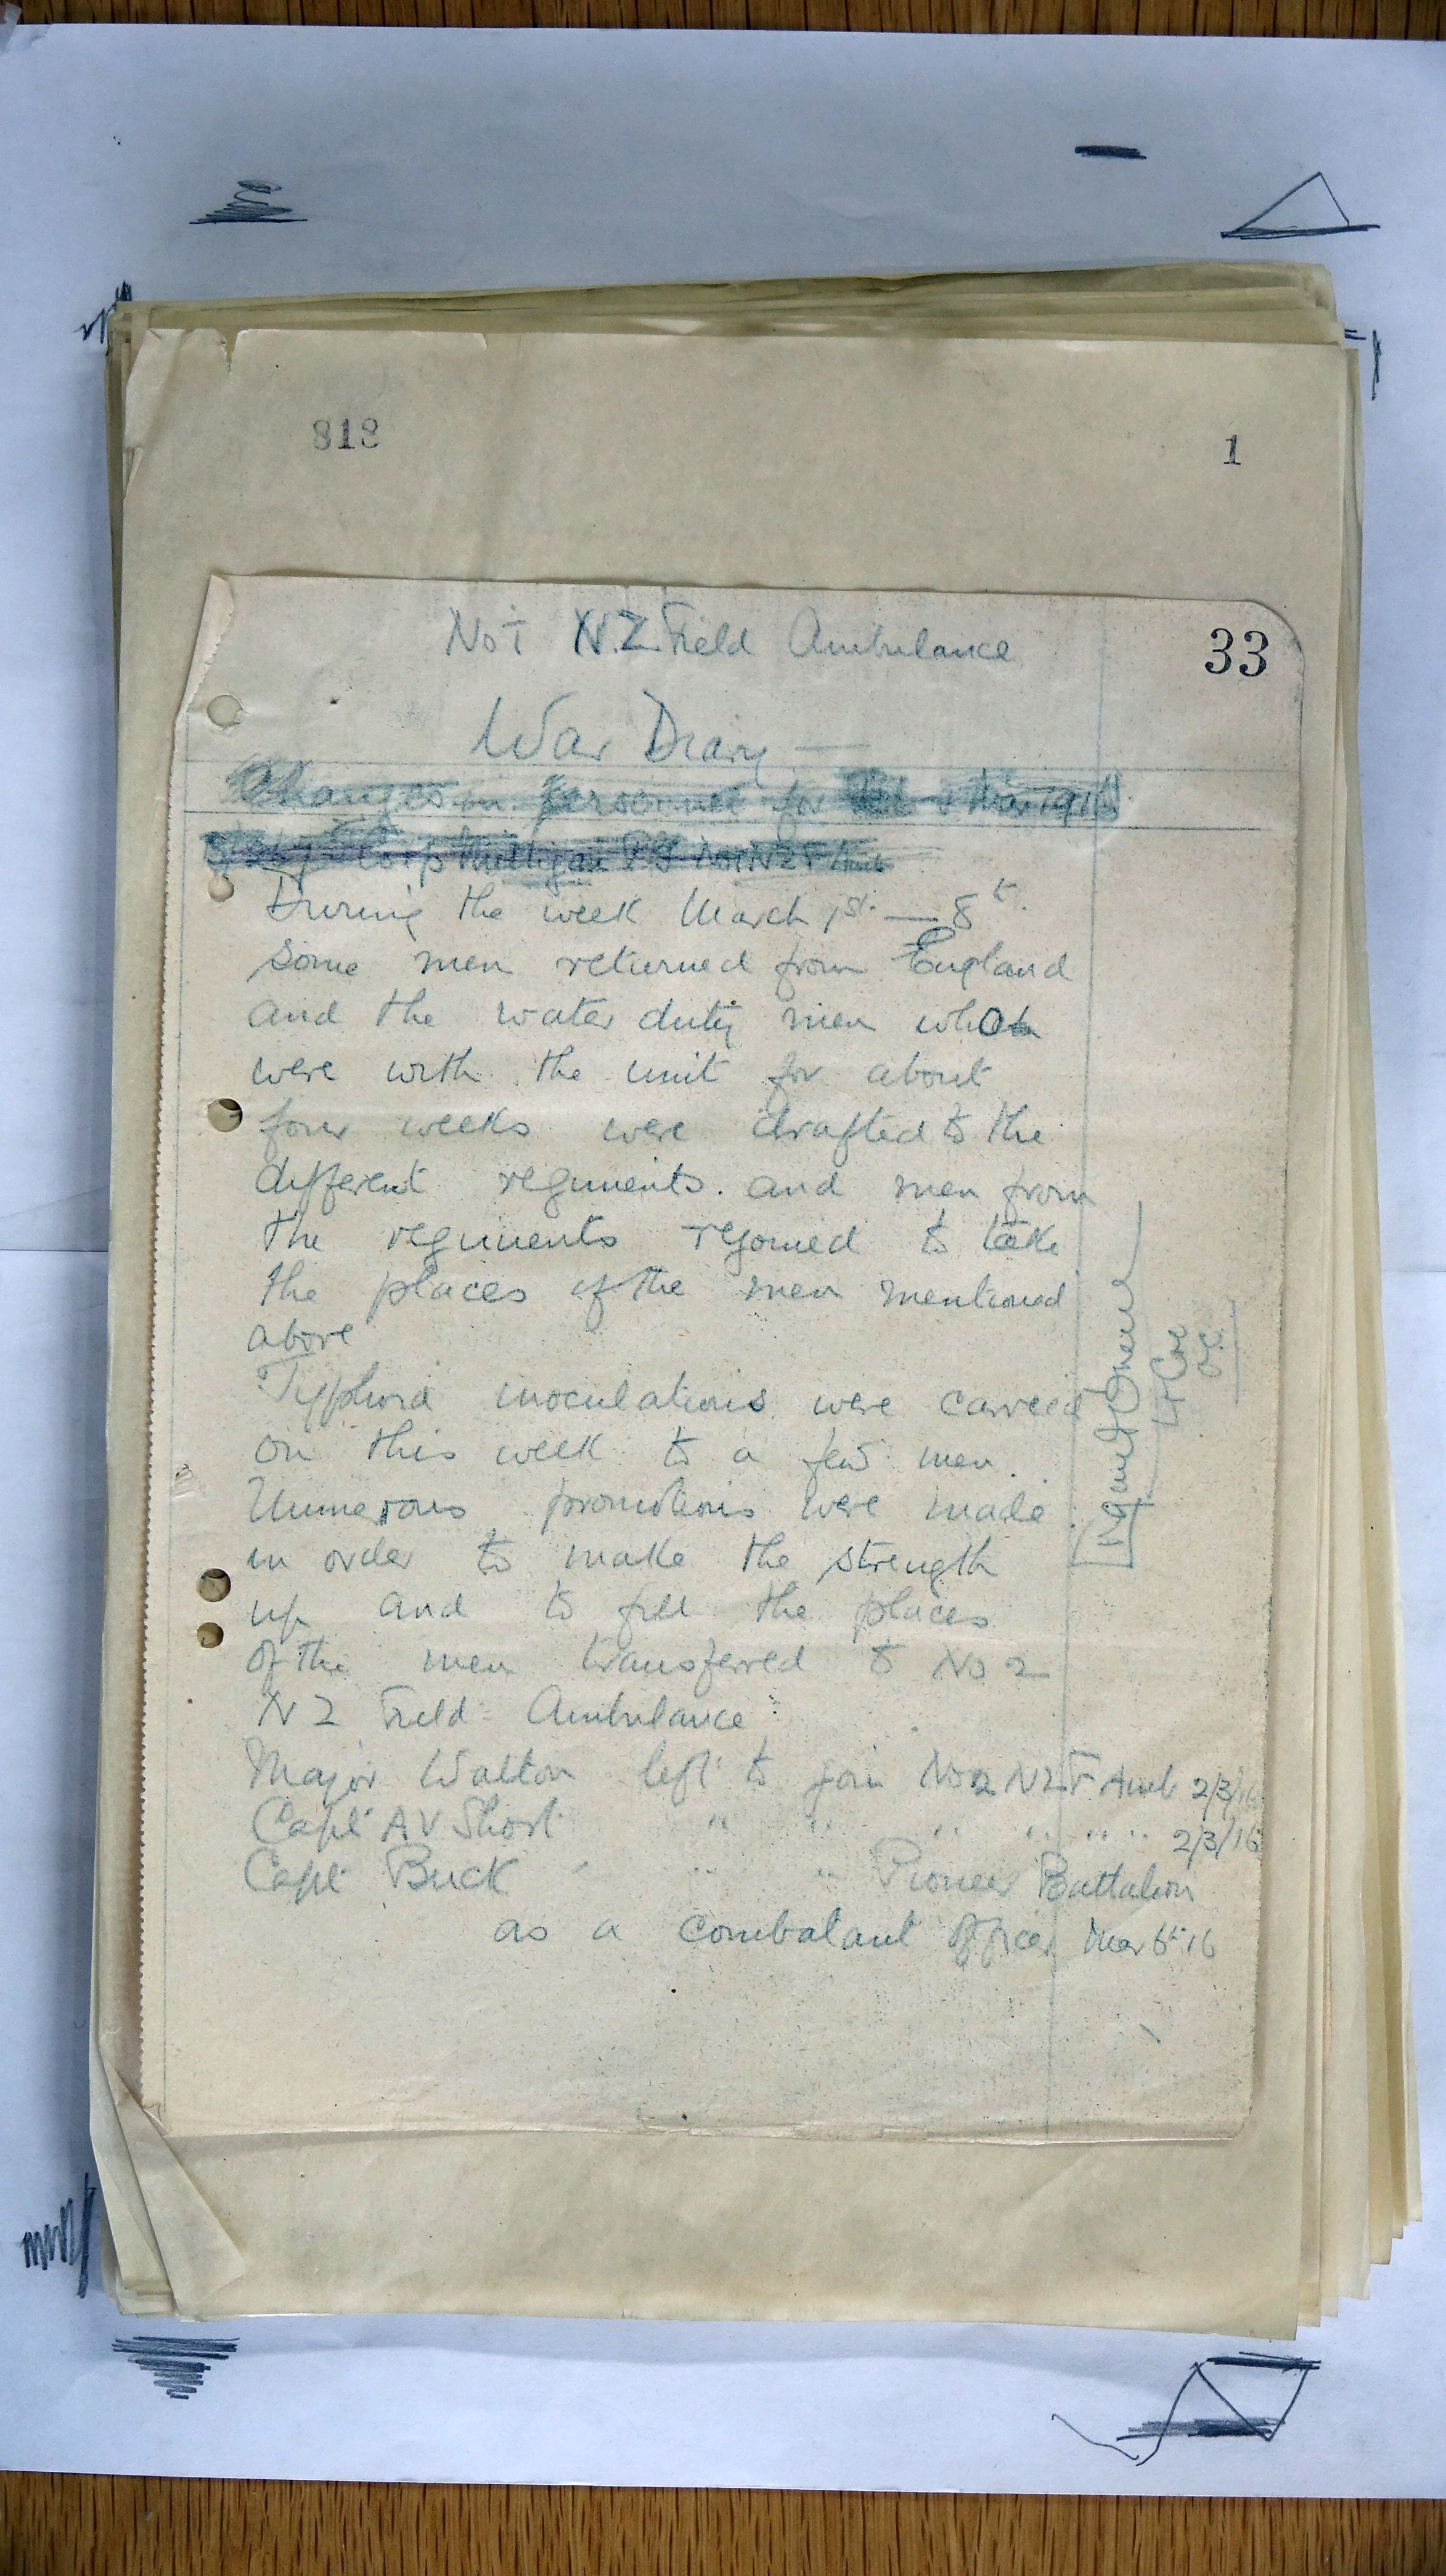 818
1
33
No 1 N.Z. Field Ambulance
War Diary —
Changes in personnel for Feb &
During the week March 1st — 8th.
Some men returned from England
and the water duty men who
were with the unit for about
four weeks were drafted to the
different regiments. and men from
the regiments rejoined to take
the places of the men mentioned
above
Typhoid inoculations were carried
on this week to a few men.
Numerous promotions were made
in order to make the strength
up and to fill the places
of the men transferred to No 2
N Z Field Ambulance
Major Walton left to join No 2 NZF Amb 2/3/16
Capt AV Short " " " " " " 2/3/16
Capt Buck " " " Pioneer Battalion
as a combatant officer Mar 6th 16
Lt Col
O.C.